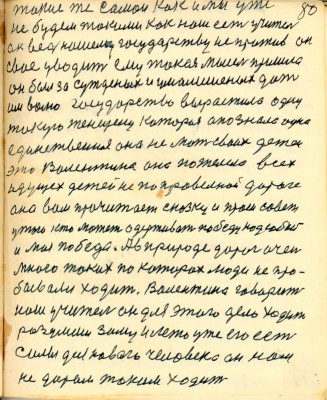 такие же самой как и мы уже 80
не будем такими как наш есть учитель
он ведь нашему государству не против он
свое уводит ему такая мысль пришла
он был за сужденых и умалишеных дать
им волю государство вырастила одну
такую женщину которая опознала одна
единственная она не мать своих детей
это Валентина она пожтела всех
идущех детей не по правелной дороге
она вам прочитает сказку и проси совет
у тово кто может одерживать победу над собою
и мил победа. А в природе дорог очен
много таких по которых люди не про-
бывали ходит. Валентина говорит
нам учител он для этого дела ходит
разумши зиму и лето уже его есть
силы для новаго человека он нам
не даром таком ходит